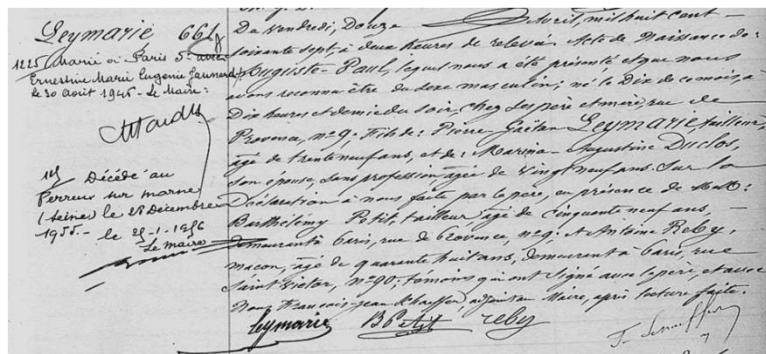 Leymarie 661
1225 Marié à Paris 5e
Ernestine Marie Eugenie
le 30 août 1945 - Le Maire:
Décédé au
Perreux sur marne
(Seine) le 28 Décembre
1955 - le 25-1-1956
Le Maire
Du vendredi, Douze Avril, mil huit cent
soixante sept à deux heures de relevée. Acte de Naissance de:
Auguste-Paul, lequel nous a été présenté et que nous
avons reconnu être du sexe masculin; né le Dix de ce mois, à
Dix heures et demie du soir, chez ses père et mère, rue de
Provence, n° 9. Fils de: Pierre Gaëtan Leymarie, tailleur,
âgé de trente neuf ans, et de: Marina-Augustine Duclos,
son épouse, sans profession, âgée de vingt neuf ans. Sur la
Déclaration à nous faite par le père, en présence de M.M:
Barthélémy Petit, tailleur, âgé de cinquante neuf ans,
demeurant à Paris, rue de Provence, n° 9; et Antoine Reby,
maçon, âgé de quarante huit ans, demeurant à Paris, rue
Saint Victor, n° 90; témoins qui ont signé avec le père, et avec
Nous François-Jean adjoint au Maire, après lecture faite.
Leymarie B Petit reby